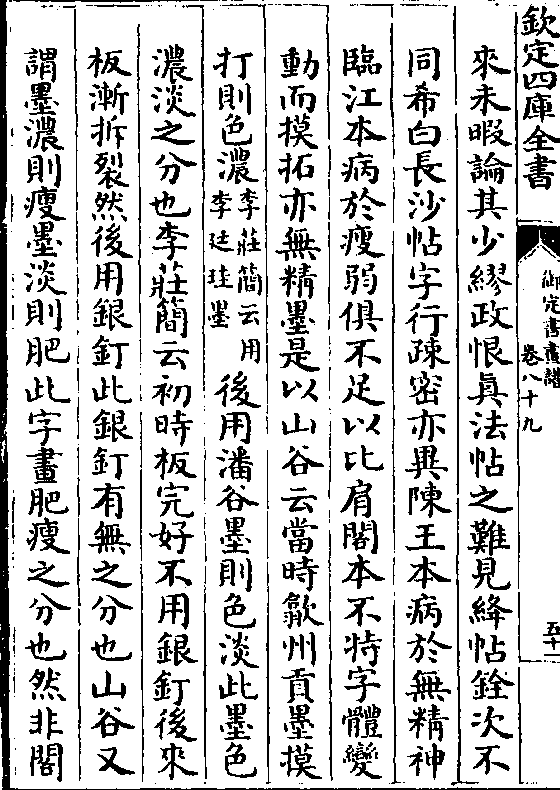 欽定四庫全書
御定書畫譜
卷八十九
五十一
來未暇論其少繆政恨真法帖之難見絳帖銓次不
同希白長沙帖字行疎密亦異陳王本病於無精神
臨江本病於瘦弱俱不足以比肩閣本不特字體變
動而摸拓亦無精墨是以山谷云當時歙州貢墨摸
打則色濃李莊簡云用李廷珪墨後用潘谷墨則色淡此墨色
濃淡之分也李莊簡云初時板完好不用銀釘後來
板漸拆裂然後用銀釘此銀釘有無之分也山谷又
謂墨濃則瘦墨淡則肥此字畫肥瘦之分也然非閣